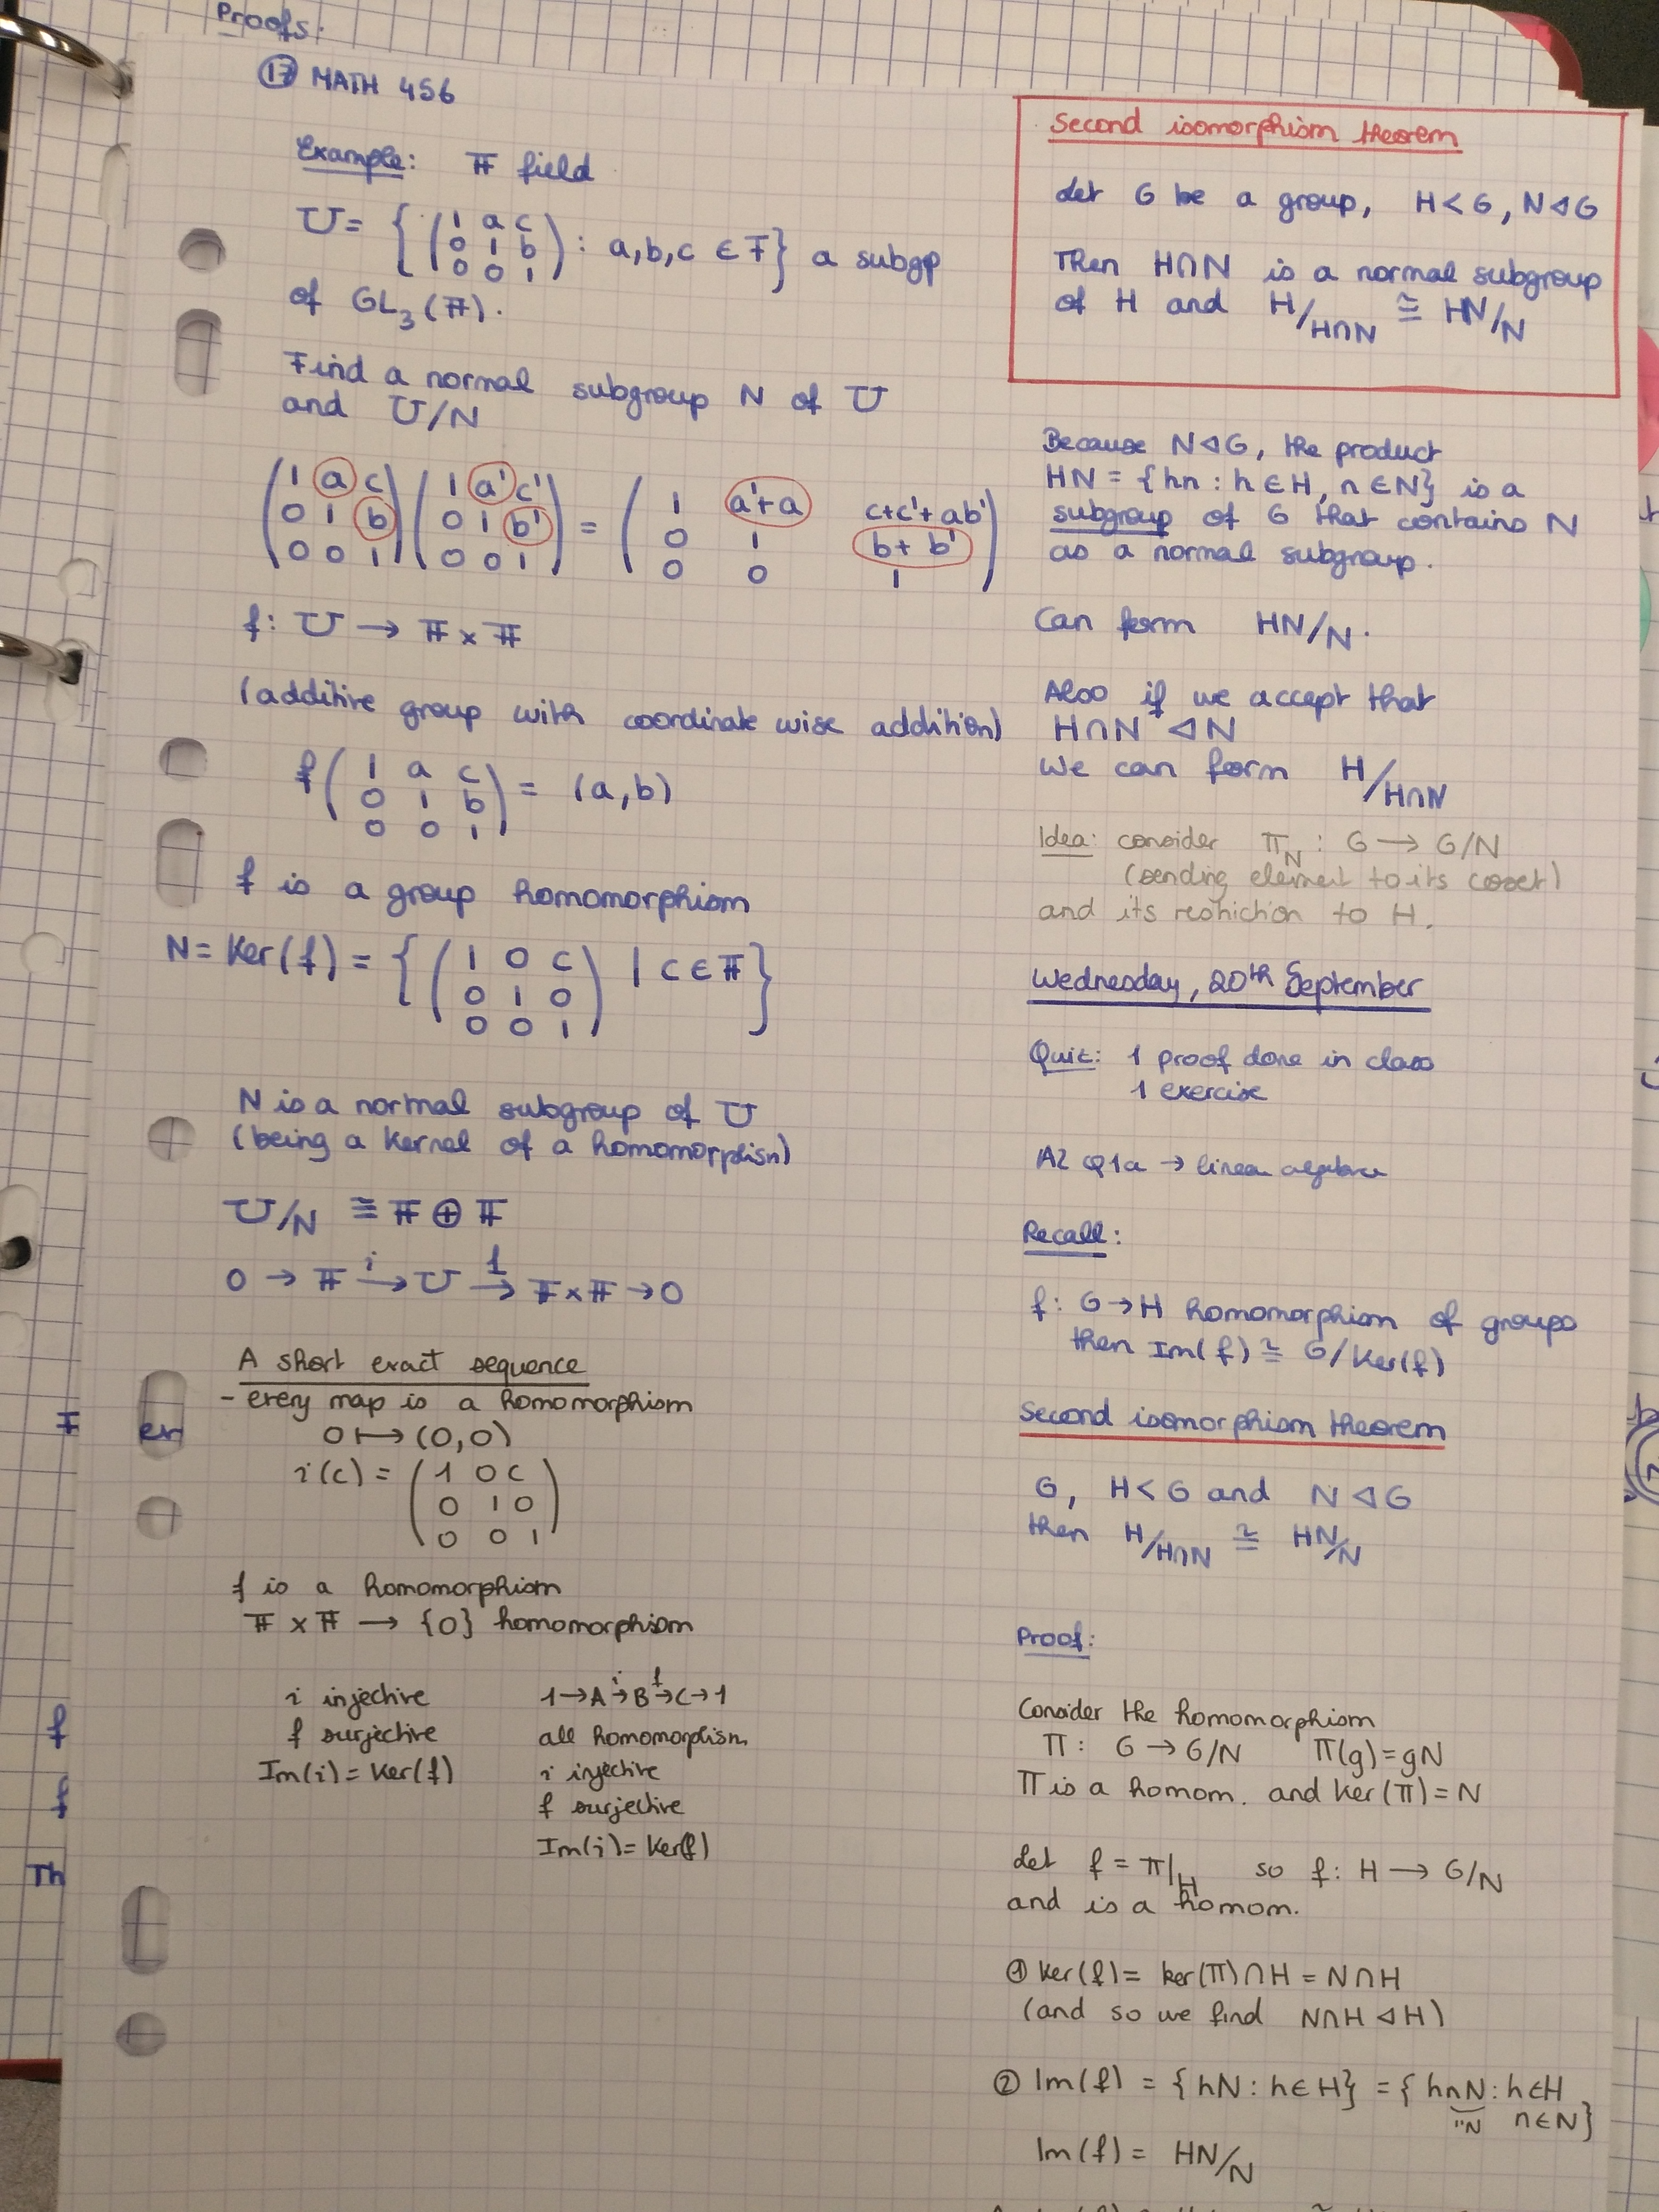 Proofs:
⑰ MATH 456
Example: 𝔽 field
U = { ( 1 a c
0 1 b
0 0 1 ) : a,b,c ∈ F } a subgp
of GL₃(𝔽).
Find a normal subgroup N of U
and U/N
( 1 a c ) ( 1 a' c' ) = ( 1 a'+a c+c'+ab' )
( 0 1 b ) ( 0 1 b' ) ( 0 1 b+b' )
( 0 0 1 ) ( 0 0 1 ) ( 0 0 1 )
f: U → 𝔽 × 𝔽
(additive group with coordinate wise addition)
f ( 1 a c
0 1 b
0 0 1 ) = (a,b)
f is a group homomorphism
N = Ker(f) = { ( 1 0 c
0 1 0
0 0 1 ) | c ∈ 𝔽 }
N is a normal subgroup of U
(being a kernel of a homomorphism)
U/N ≅ 𝔽 ⊕ 𝔽
0 → 𝔽 →ⁱ U →ᶠ 𝔽 × 𝔽 → 0
A short exact sequence
- every map is a homomorphism
0 ↦ (0,0)
i(c) = ( 1 0 c
0 1 0
0 0 1 )
f is a homomorphism
𝔽 × 𝔽 → {0} homomorphism
i injective
f surjective
Im(i) = Ker(f)
1 → A →ⁱ B →ᶠ C → 1
all homomorphism
i injective
f surjective
Im(i) = Ker(f)
Second isomorphism theorem
Let G be a group, H < G, N ◁ G
Then H∩N is a normal subgroup
of H and H/H∩N ≅ HN/N
Because N ◁ G, the product
HN = {hn : h ∈ H, n ∈ N} is a
subgroup of G that contains N
as a normal subgroup.
Can form HN/N.
Also if we accept that
H∩N ◁ N
we can form H/H∩N
Idea: consider π_N : G → G/N
(sending element to its coset)
and its restriction to H.
Wednesday, 20th September
Quiz: 1 proof done in class
1 exercise
A2 Q1a → linear algebra
Recall:
f: G → H homomorphism of groups
then Im(f) ≅ G/Ker(f)
Second isomorphism theorem
G, H < G and N ◁ G
then H/H∩N ≅ HN/N
Proof:
Consider the homomorphism
π : G → G/N π(g) = gN
π is a homom. and ker(π) = N
Let f = π|_H so f: H → G/N
and is a homom.
① Ker(f) = ker(π) ∩ H = N∩H
(and so we find N∩H ◁ H)
② Im(f) = {hN : h ∈ H} = {hnN : h ∈ H
"N n ∈ N}
Im(f) = HN/N
er
f
f
Th